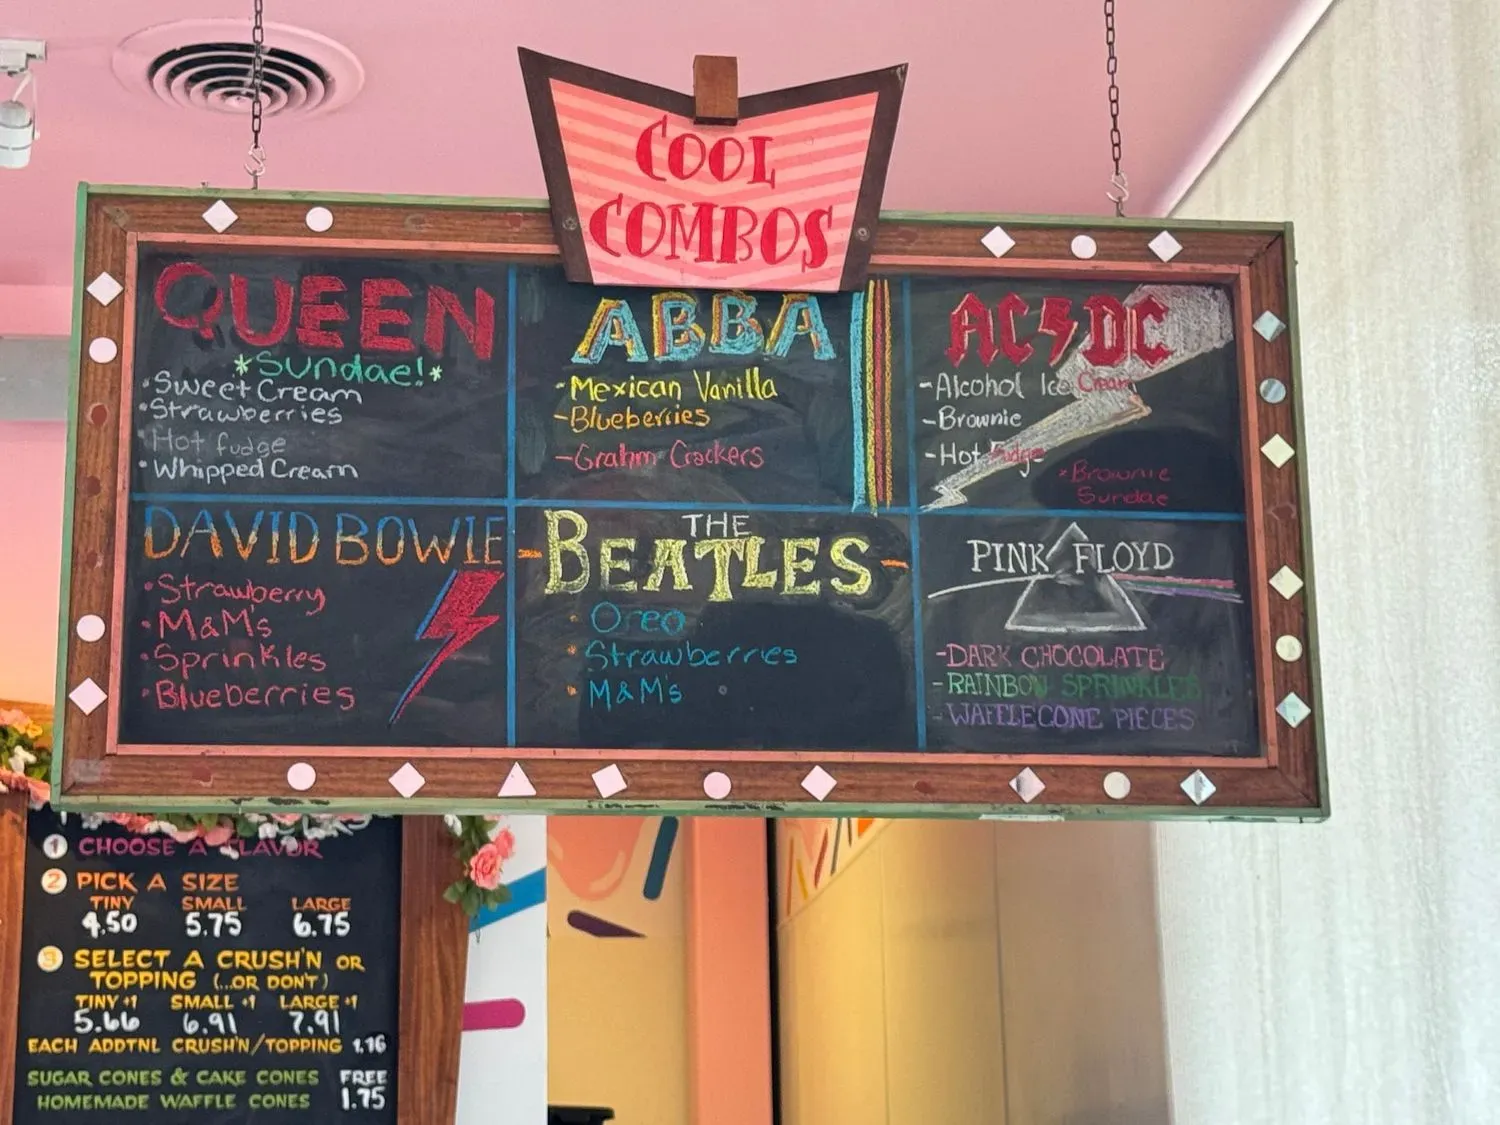 COOL
COMBOS
QUEEN
*Sundae!*
·Sweet Cream
·Strawberries
·Hot fudge
·Whipped Cream
ABBA
-Mexican Vanilla
-Blueberries
-Grahm Crackers
AC DC
-Alcohol Ice Cream
-Brownie
-Hot Fudge
*Brownie
Sundae
DAVID BOWIE
·Strawberry
·M&M's
·Sprinkles
·Blueberries
THE
-BEATLES-
· Oreo
· Strawberries
· M&M's
PINK FLOYD
-DARK CHOCOLATE
-RAINBOW SPRINKLES
-WAFFLECONE PIECES
1 CHOOSE A FLAVOR
2 PICK A SIZE
TINY SMALL LARGE
4.50 5.75 6.75
3 SELECT A CRUSH'N OR
TOPPING (...OR DON'T)
TINY +1 SMALL +1 LARGE +1
5.66 6.91 7.91
EACH ADDTNL CRUSH'N/TOPPING 1.16
SUGAR CONES & CAKE CONES FREE
HOMEMADE WAFFLE CONES 1.75